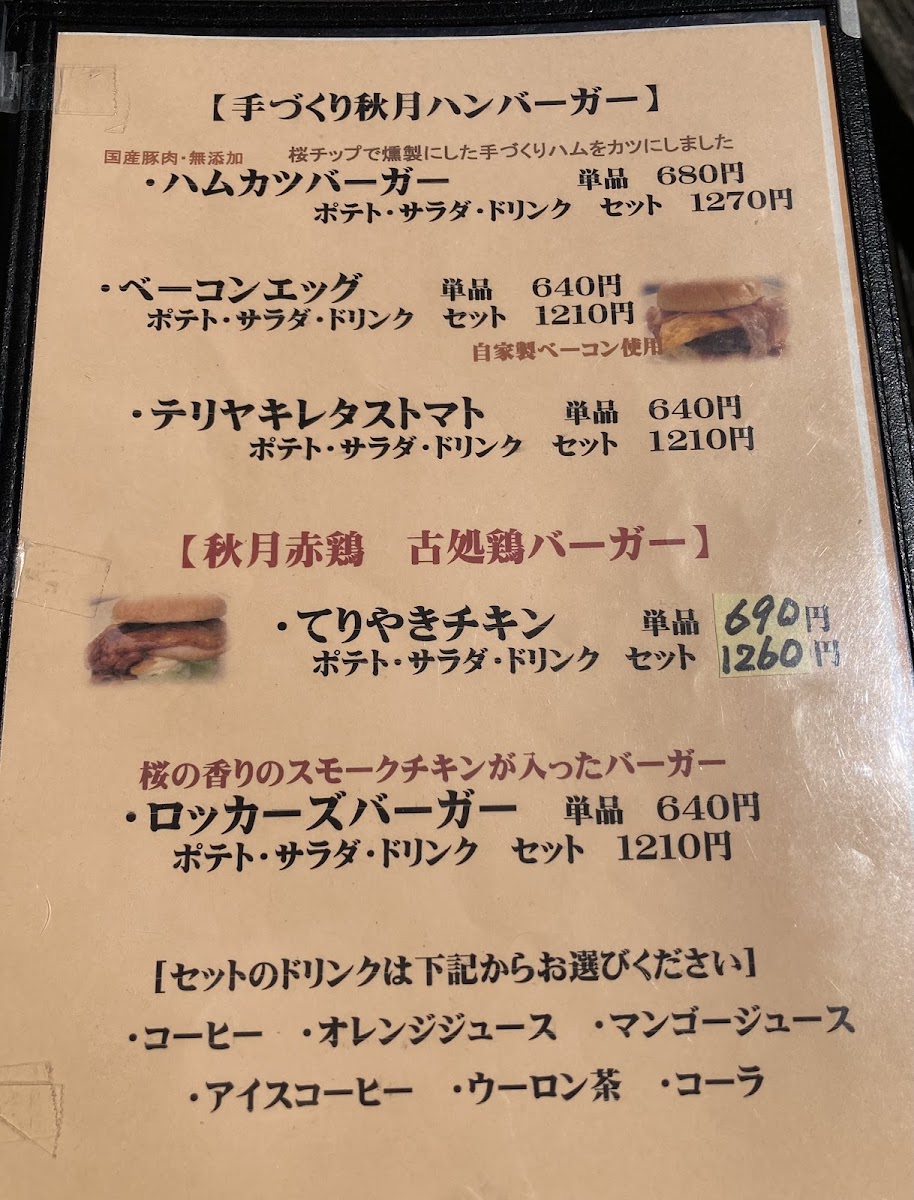 【手づくり秋月ハンバーガー】
国産豚肉・無添加　桜チップで燻製にした手づくりハムをカツにしました
・ハムカツバーガー　単品　680円
ポテト・サラダ・ドリンク　セット　1270円
・ベーコンエッグ　単品　640円
ポテト・サラダ・ドリンク　セット　1210円
自家製ベーコン使用
・テリヤキレタストマト　単品　640円
ポテト・サラダ・ドリンク　セット　1210円
【秋月赤鶏　古処鶏バーガー】
・てりやきチキン　単品　690円
ポテト・サラダ・ドリンク　セット　1260円
桜の香りのスモークチキンが入ったバーガー
・ロッカーズバーガー　単品　640円
ポテト・サラダ・ドリンク　セット　1210円
[セットのドリンクは下記からお選びください]
・コーヒー　・オレンジジュース　・マンゴージュース
・アイスコーヒー　・ウーロン茶　・コーラ